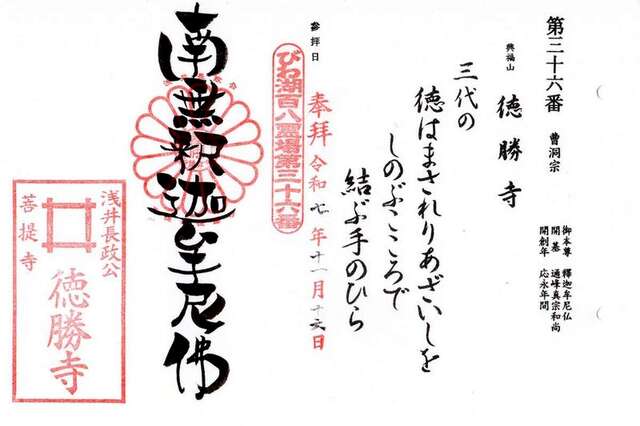 第三十六番 曹洞宗
御本尊 釋迦牟尼仏
開基 通峰真宗和尚
開創年 応永年間
興福山 徳勝寺
三代の
徳はまされりあざいしを
しのぶこころで
結ぶ手のひら
参拝日
奉拝 令和七年十一月十六日
びわ湖百八霊場第三十六番
南無釈迦牟尼佛
浅井長政公
徳勝寺
菩提寺